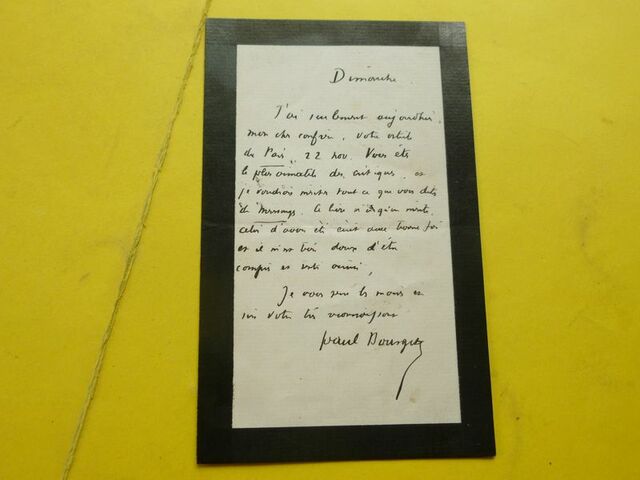 Dimanche.
J'ai seulement aujourd'hui,
mon cher confrère, votre article
du Paris, 22 nov. Vous êtes
le plus aimable des critiques, et
je voudrais mériter tout ce que vous dites
de Mensonges. Ce livre n'a qu'un mérite,
celui d'avoir été écrit avec bonne foi
et il m'est très doux d'être
compris et senti ainsi.
Je vous serre les mains et
suis votre très reconnaissant
Paul Bourget